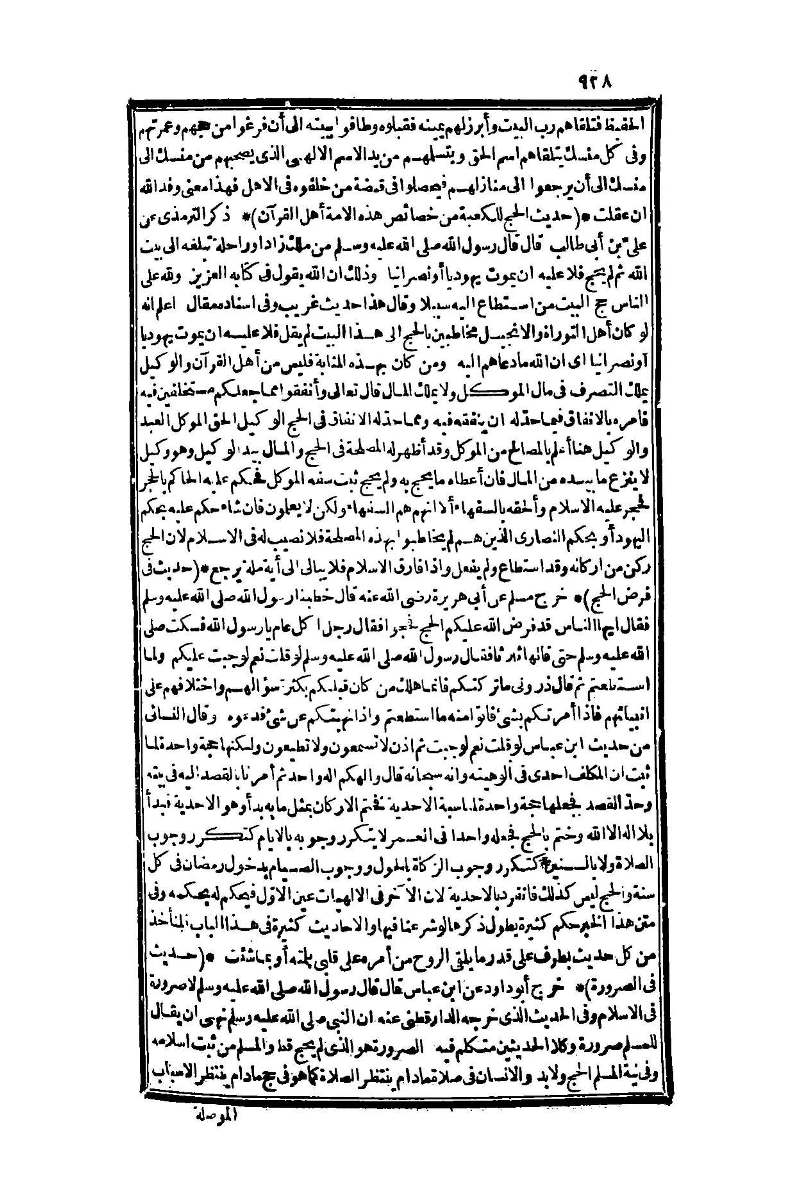 ٩٢٨
الحفيظ فتلقاهم رب البيت وأبرز لهم يمينه فقبلوه وطافوا ببيته الى أن فرغوا من حجهم وعمرتهم
وفى كل منسك يتلقاهم اسم الحق ويتسلمهم من يد الاسم الالهى الذى يصحبهم من منسك الى
منسك الى أن يرجعوا الى منازلهم فيحصلوا فى قبضة من خلفوه فى الاهل فهذا معنى وفد الله
ان عقلت *(حديث الحج للكعبة من خصائص هذه الامة أهل القرآن)* ذكر الترمذى عن
على بن أبى طالب قال قال رسول الله صلى الله عليه وسلم من ملك زادا وراحلة تبلغه الى بيت
الله ثم لم يحج فلا عليه ان يموت يهوديا أو نصرانيا وذلك ان الله يقول فى كتابه العزيز ولله على
الناس حج البيت من استطاع اليه سبيلا وقال هذا حديث غريب وفى اسناده مقال اعلم انه
لو كان أهل التوراة والانجيل مخاطبين بالحج الى هذا البيت لم يقل فلا عليه ان يموت يهوديا
أو نصرانيا اى ان الله ما دعاهم اليه ومن كان بهذه المثابة فليس من أهل القرآن والوكيل
يملك التصرف فى مال الموكل ولا يملك المال قال تعالى وأنفقوا مما جعلكم مستخلفين فيه
فامره بالانفاق فيما حدّ له ان ينفقه فيه ومما حدّ له الانفاق فى الحج الوكيل الحق الموكل العبد
والوكيل هنا أعلم بالمصالح من الموكل وقد أظهر له المصلحة فى الحج والمال بيد الوكيل وهو وكيل
لا ينزع ما بيده من المال فان أعطاه ما يحج به ولم يحج ثبت سفه الموكل فحكم عليه الحاكم بالحجر
فحجر عليه الاسلام وألحقه بالسفهاء ألا انهم هم السفهاء ولكن لا يعلمون فان شاء حكم عليه بحكم
اليهود أو بحكم النصارى الذين هم لم يخاطبوا بهذه المصلحة فلا نصيب له فى الاسلام لان الحج
ركن من اركانه وقد استطاع ولم يفعل واذا فارق الاسلام فلا يبالى الى أية ملة يرجع *(حديث فى
فرض الحج)* خرج مسلم عن أبى هريرة رضى الله عنه قال خطبنا رسول الله صلى الله عليه وسلم
فقال ايها الناس قد فرض الله عليكم الحج فحجوا فقال رجل اكل عام يا رسول الله فسكت صلى
الله عليه وسلم حتى قالها ثلاثا فقال رسول الله صلى الله عليه وسلم لو قلت نعم لوجبت عليكم ولما
استطعتم ثم قال ذرونى ما تركتكم فانما هلك من كان قبلكم بكثرة سؤالهم واختلافهم على
انبيائهم فاذا أمرتكم بشئ فاتوا منه ما استطعتم واذا نهيتكم عن شئ فدعوه وقال النسائى
من حديث ابن عباس لو قلت نعم لوجبت ثم اذن لا تسمعون ولا تطيعون ولكنها حجة واحدة لما
ثبت ان المكلف احدى فى الوهيته وانه سبحانه قال والهكم اله واحد ثم أمرنا بالقصد اليه فى بيته
وحدّ القصد فجعلها حجة واحدة لمناسبة الاحدية فختم الاركان بمثل ما به بدأ وهو الاحدية فبدأ
بلا اله الا الله وختم بالحج فجعله واحدا فى العمر لا يتكرر وجوبه بالايام كتكرر وجوب
الصلاة ولا بالسنين كتكرر وجوب الزكاة بالحول ووجوب الصيام بدخول رمضان فى كل
سنة والحج ليس كذلك فانفرد بالاحدية لان الآخر فى الالهيات عين الاوّل فيحكم له بحكمه وفى
متن هذا الخبر حكم كثيرة يطول ذكرها لو شرعنا فيها والاحاديث كثيرة فى هذا الباب فلنأخذ
من كل حديث بطرف على قدر ما يلقى الروح من أمره على قلبى بلمته أو بما شئت *(حديث
فى الصرورة)* خرج أبو داود عن ابن عباس قال قال رسول الله صلى الله عليه وسلم لا صرورة
فى الاسلام وفى الحديث الذى خرجه الدارقطنى عنه ان النبى صلى الله عليه وسلم نهى ان يقال
للمسلم صرورة وكلا الحديثين متكلم فيه الصرورة هو الذى لم يحج قط والمسلم من ثبت اسلامه
وفى نية المسلم الحج ولا بد والانسان فى صلاة ما دام ينتظر الصلاة كما هو فى حج ما دام ينتظر الاسباب
الموصلة